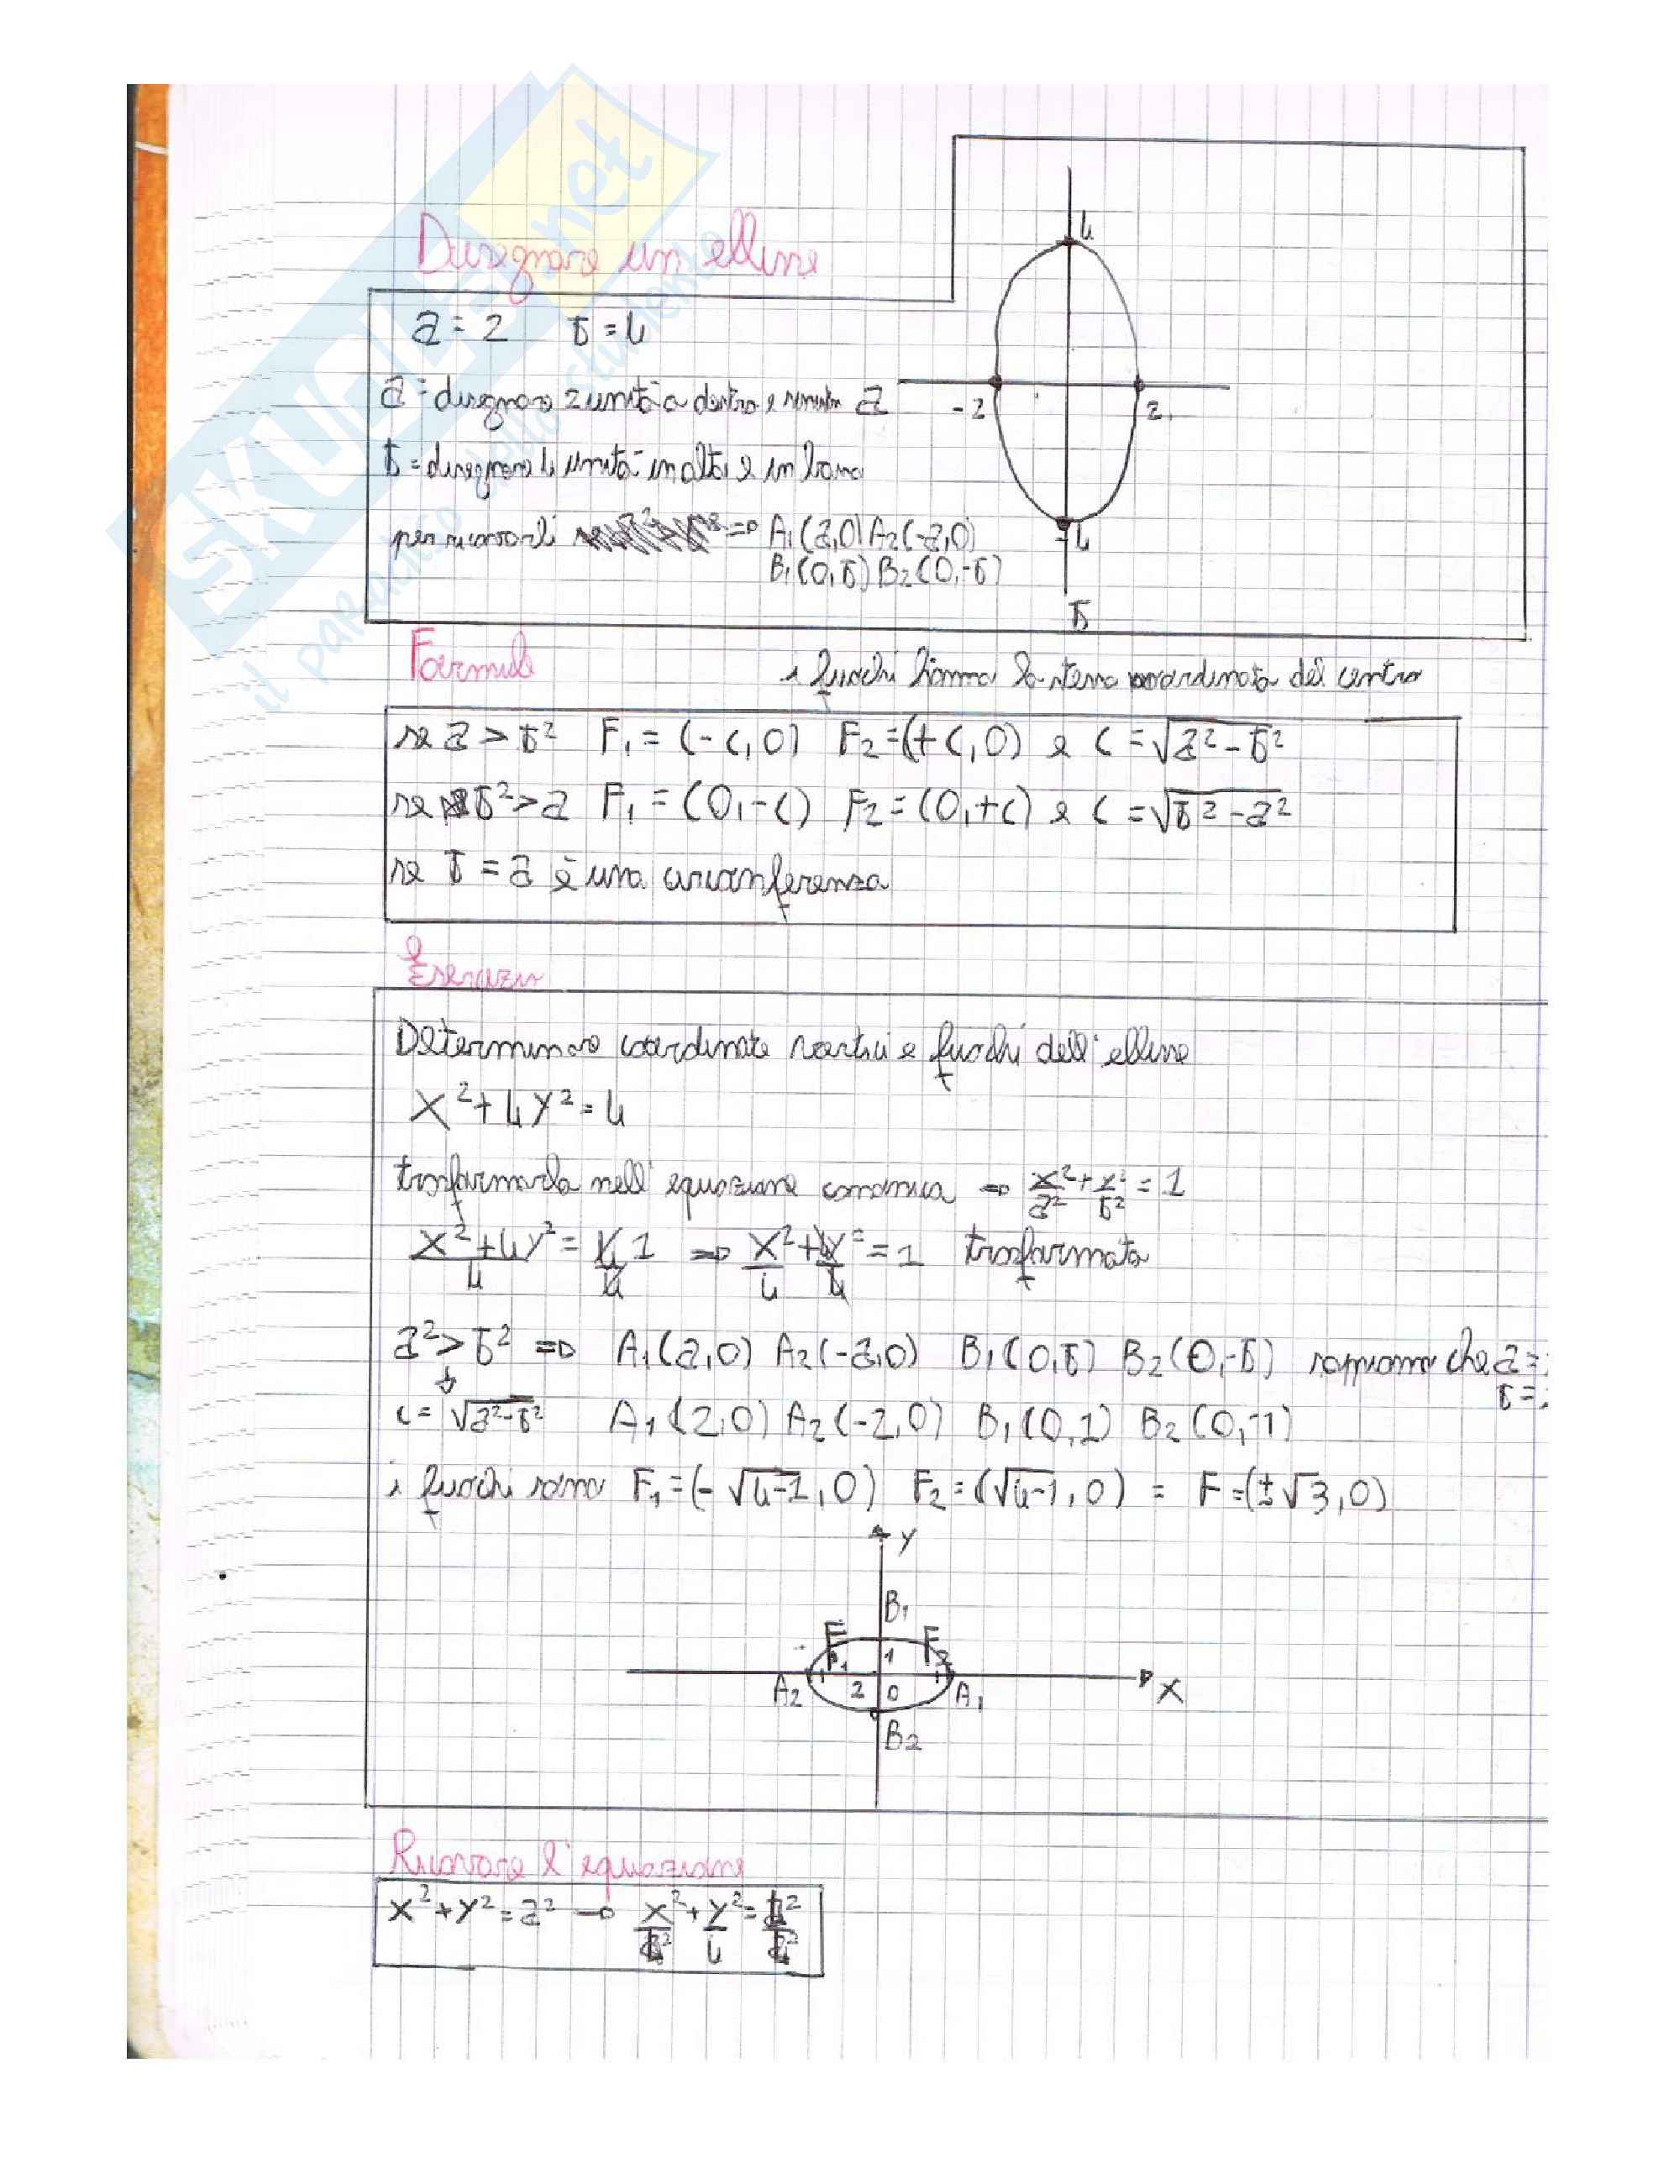 SKUOLA.net
il paradiso dello studente
Disegnare un ellisse
a = 2 b = 4
a = disegnare 2 unità a destra e sinistra a
b = disegnare 4 unità in alto e in basso
per ricavarli => A₁(a,0) A₂(-a,0)
B₁(0,b) B₂(0,-b)
4
-2 2
-4
b
Formule
i fuochi hanno la stessa coordinata del centro
se a > b² F₁ = (-c,0) F₂ = (+c,0) e c = √a² - b²
se b² > a F₁ = (0,-c) F₂ = (0,+c) e c = √b² - a²
se b = a è una circonferenza
Esercizio
Determinare coordinate vertici e fuochi dell'ellisse
x² + 4y² = 4
trasformarla nell'equazione canonica => x²/a² + y²/b² = 1
x² + 4y²/4 = 4/4 1 => x²/4 + 4y²/4 = 1 trasformata
a² > b² => A₁(a,0) A₂(-a,0) B₁(0,b) B₂(0,-b) sappiamo che a =
b =
c = √a² - b² A₁(2,0) A₂(-2,0) B₁(0,1) B₂(0,-1)
i fuochi sono F₁ = (-√4-1,0) F₂ = (√4-1,0) = F = (±√3,0)
y
B₁
F₁ 1 F₂
A₂ 2 0 A₁ x
B₂
Ricavare l'equazione
x² + y² = a² → x²/a² + y²/4 = a²/a²